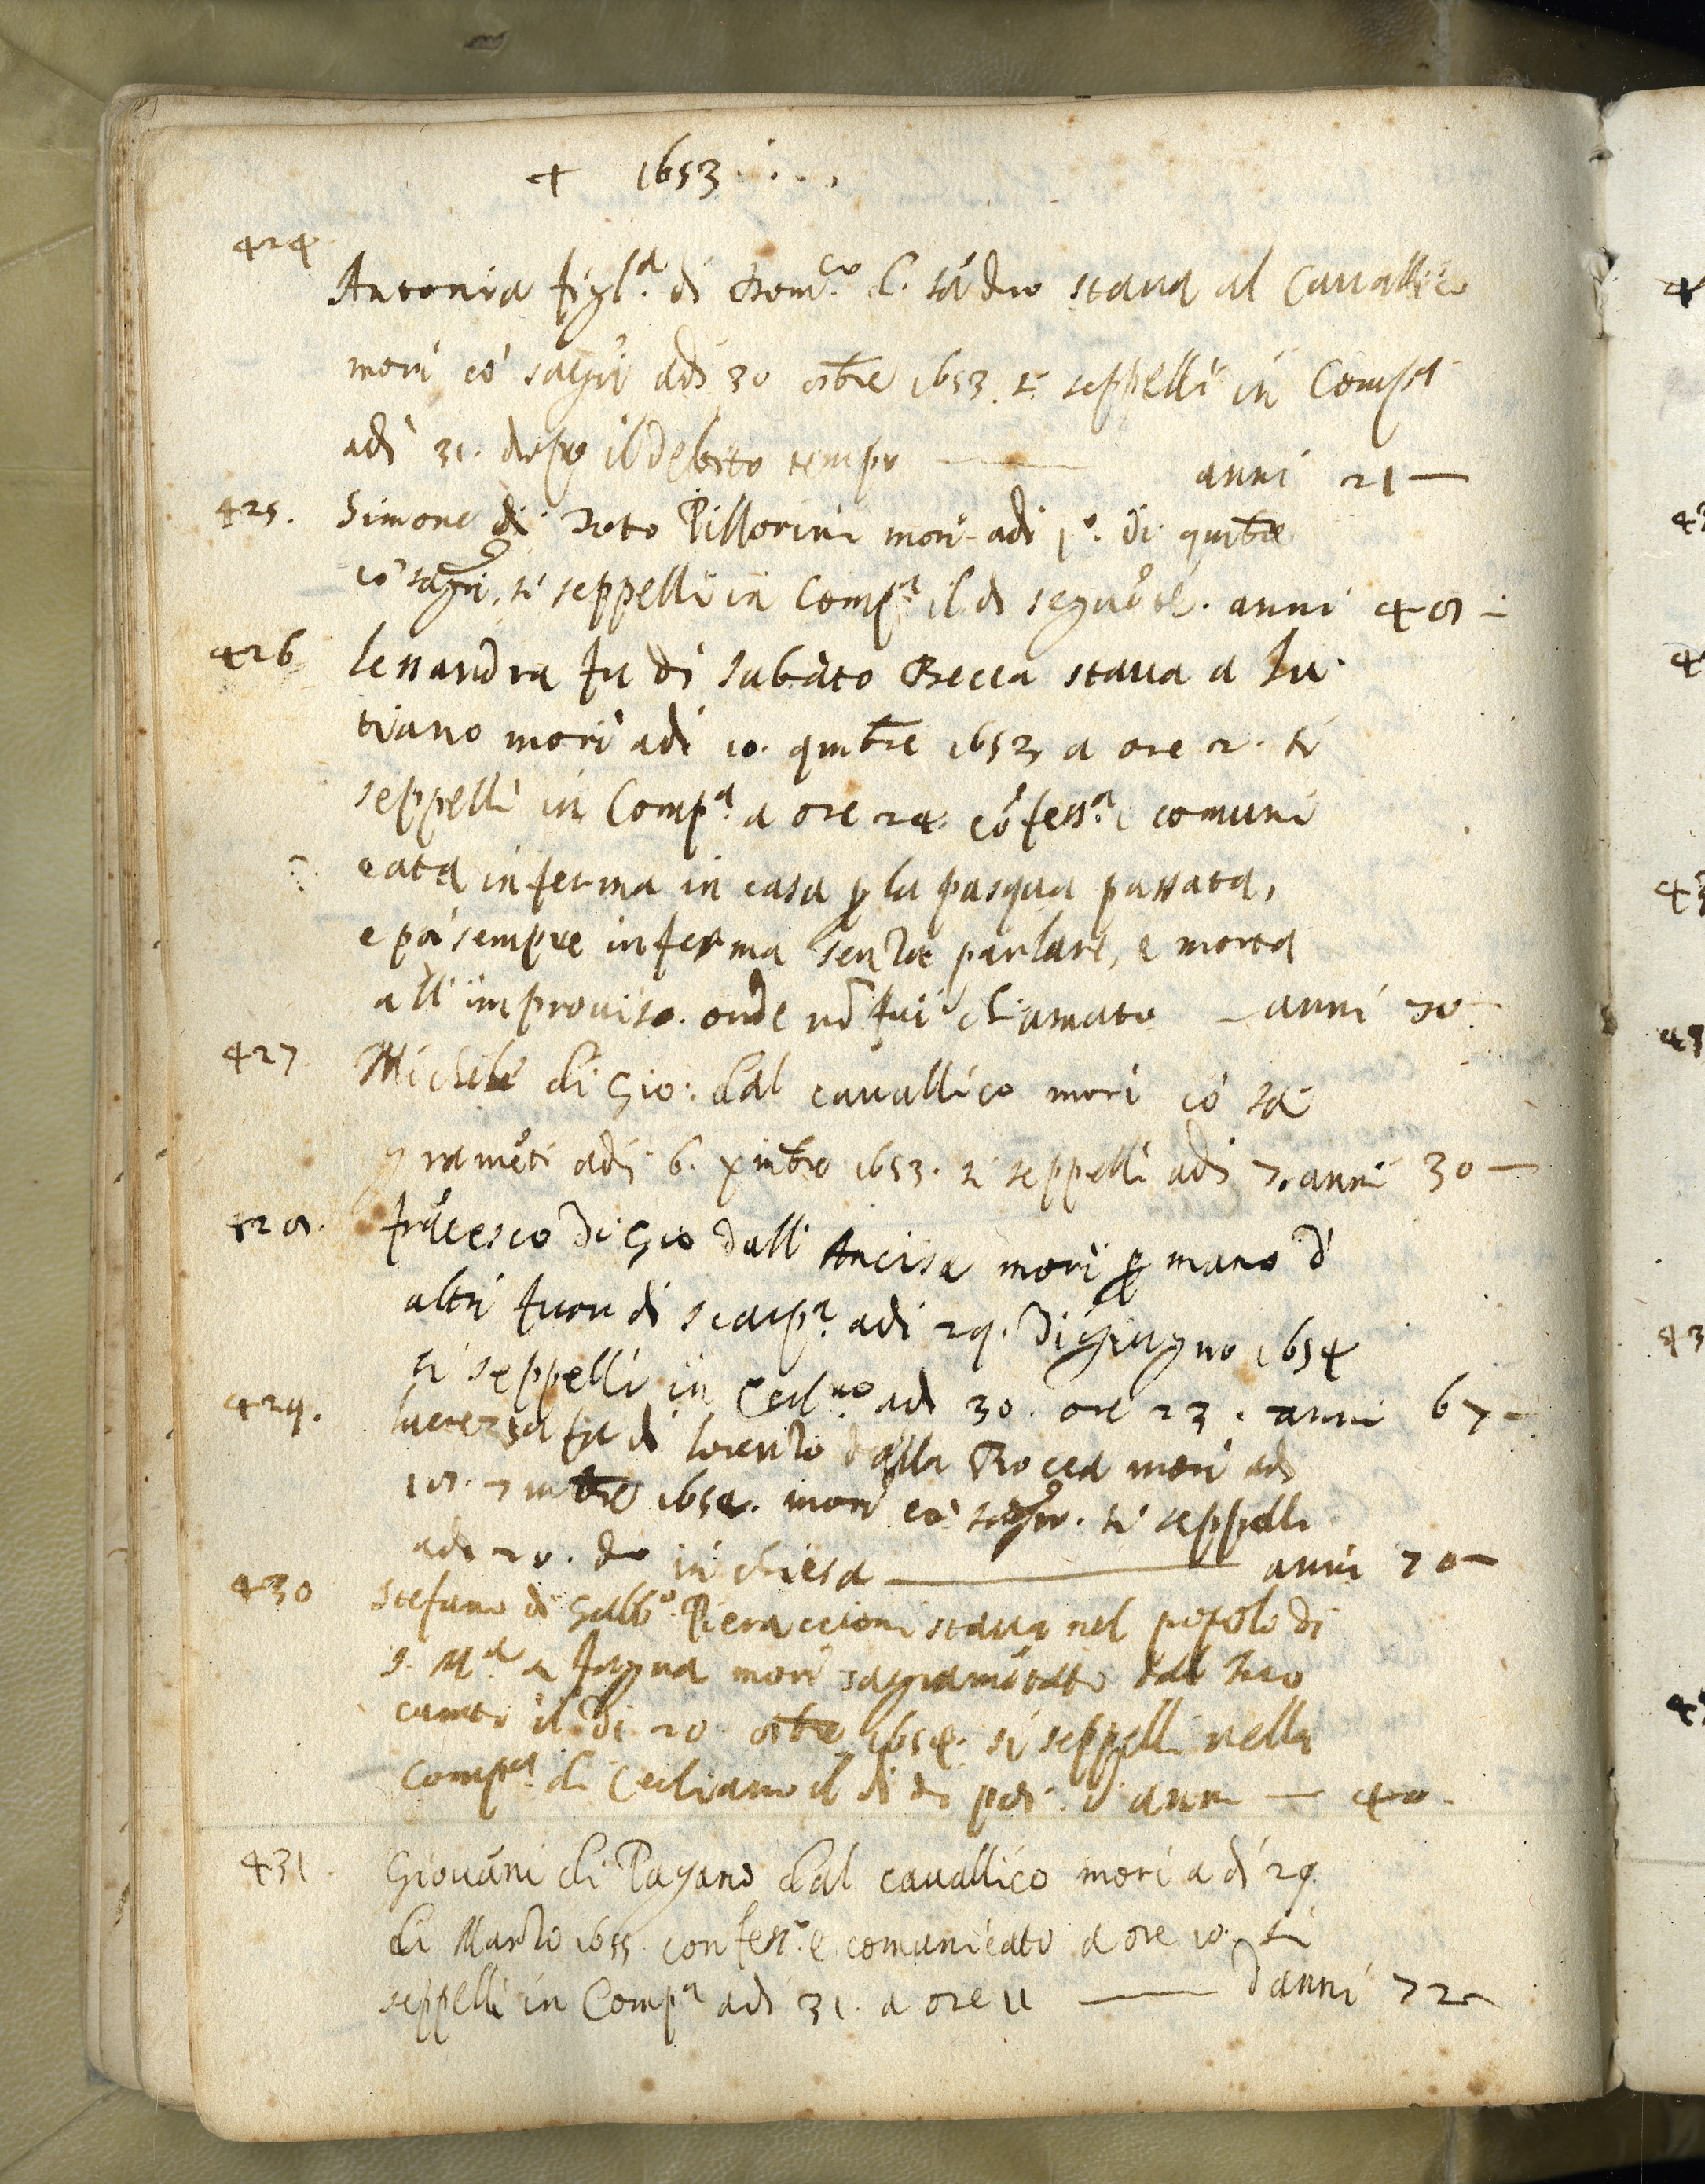 + 1653
424
Antonia figl.ª di Dom.co d. sādro staua al Cauallico
morì cō sagri adi 30 otbre 1653. si seppellì in Compª
adi 31. dopo il debito tempo — anni 21 —
425. Simone di Toto Pillorini morì adi p.º di 9mbre
cō sagri, si seppellì in Comp.ª il di seguēte. anni 48 —
426 lessandra fu di Sabato Becca staua a Lu
tiano morì adi 10. 9mbre 1653 a ore 2. si
seppellì in Comp.ª a ore 24. cōfess.ª e comuni
cata inferma in casa p la pasqua passata,
e poi sempre inferma senza parlare, e morta
all'improuiso. onde nō fui chiamato — anni 70 —
427 Michele di Gio: dal cauallico morì cō sa
gramēti adi 6. xmbre 1653. si seppellì adi 7. anni 30 —
428. frācesco di Gio dall'Ancisa morì p mano d'
altri fuor di Scarp.ª adi 29. di giugno 1654
si seppellì in Cecl.no adi 30. ore 23. anni 67 —
429. lucrezia fu di lorenzo dalla Rocca morì adi
18. 7mbre 1654. morì cō sagri. si seppellì
adi 20. do in chiesa — anni 70 —
430 Stefano di Galb.º Pieraccioni staua nel popolo di
S. M.ª a fagna morì sagramētato dal suo
curato il di 20 otbre 1654. si seppellì nella
compª. di Cecliano il di di anni — 40.
431 Giouāni di Pagano dal cauallico morì a di 29.
di Marzo 1655. confess.º e comunicato a ore 10. si
seppellì in Compª adi 31. a ore 11 — d'anni 72